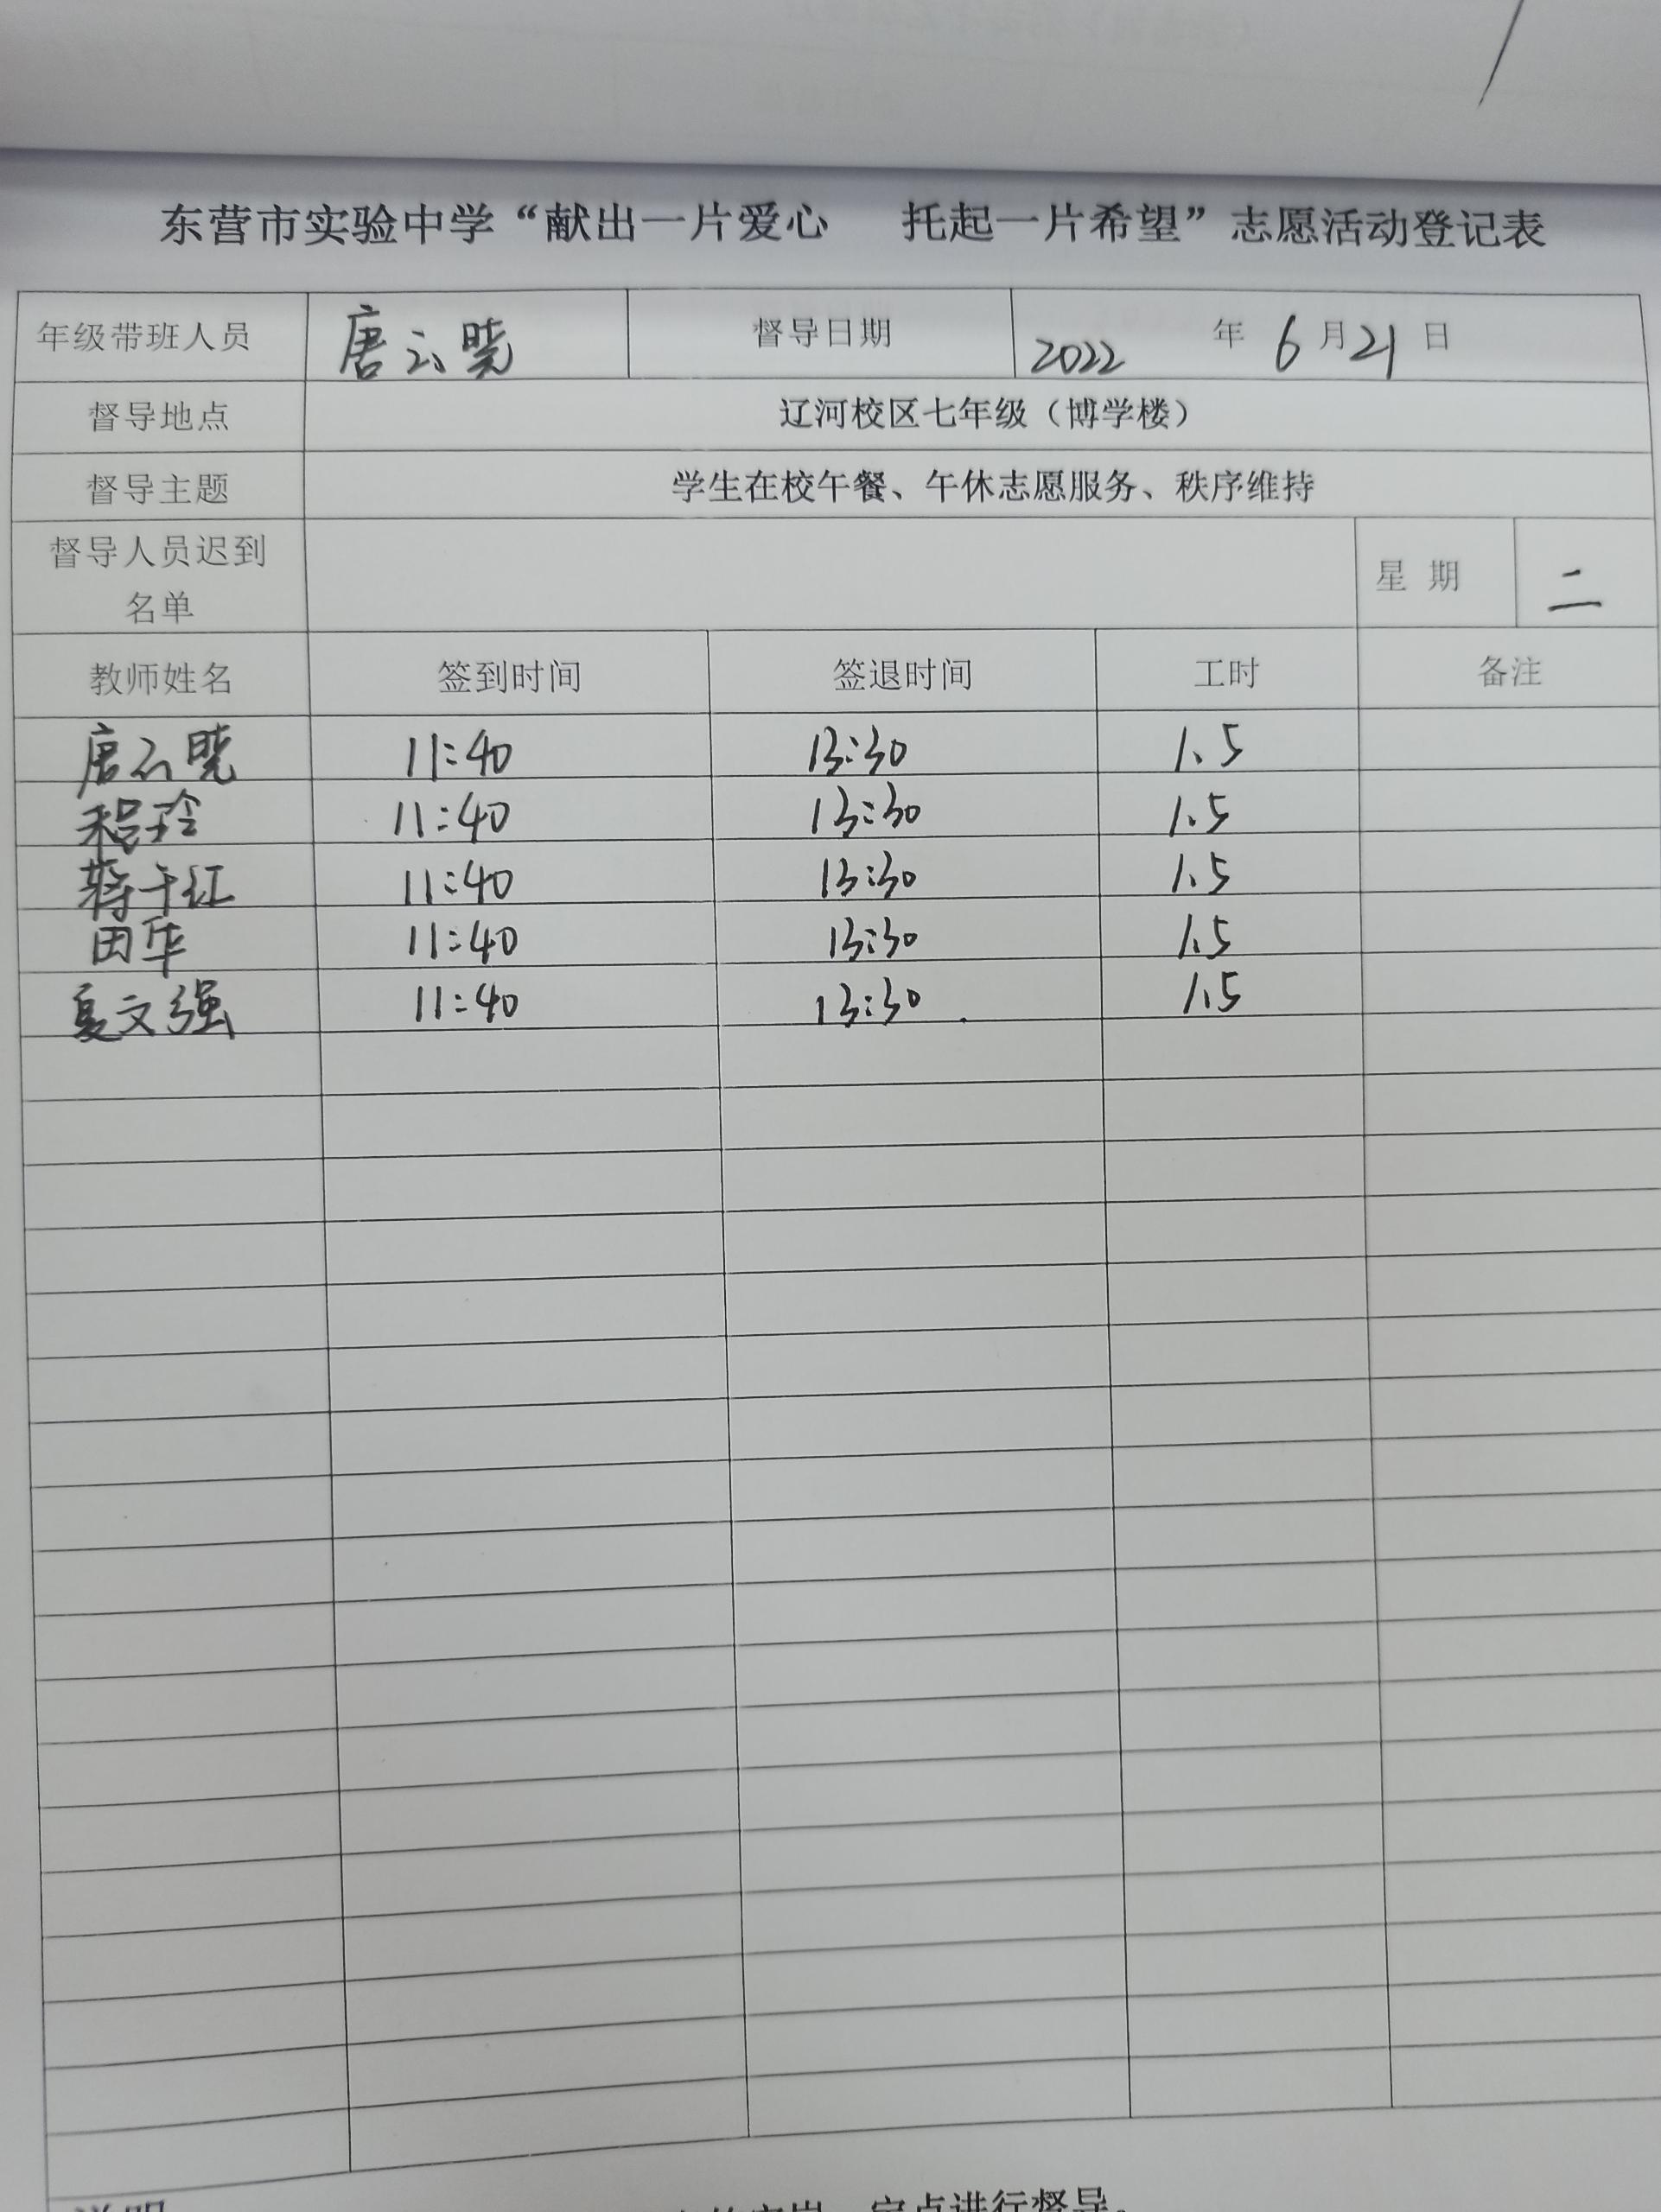 东营市实验中学“献出一片爱心 托起一片希望”志愿活动登记表
年级带班人员 唐云晓 督导日期 2022 年 6 月 21 日
督导地点 辽河校区七年级（博学楼）
督导主题 学生在校午餐、午休志愿服务、秩序维持
督导人员迟到名单 星 期 二
教师姓名 签到时间 签退时间 工时 备注
唐云晓 11:40 13:30 1.5
程玲 11:40 13:30 1.5
蒋千红 11:40 13:30 1.5
田华 11:40 13:30 1.5
夏文强 11:40 13:30 1.5
定点进行督导。